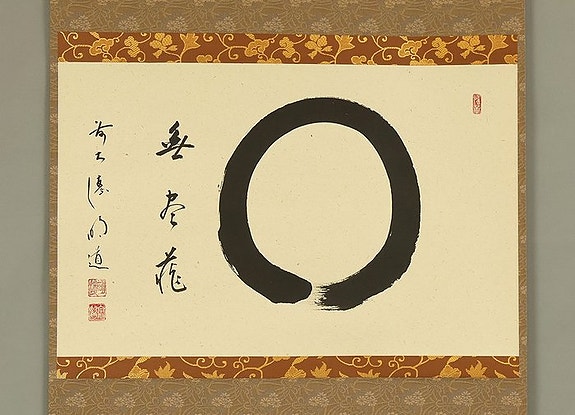 無尽蔵
前大徳明道